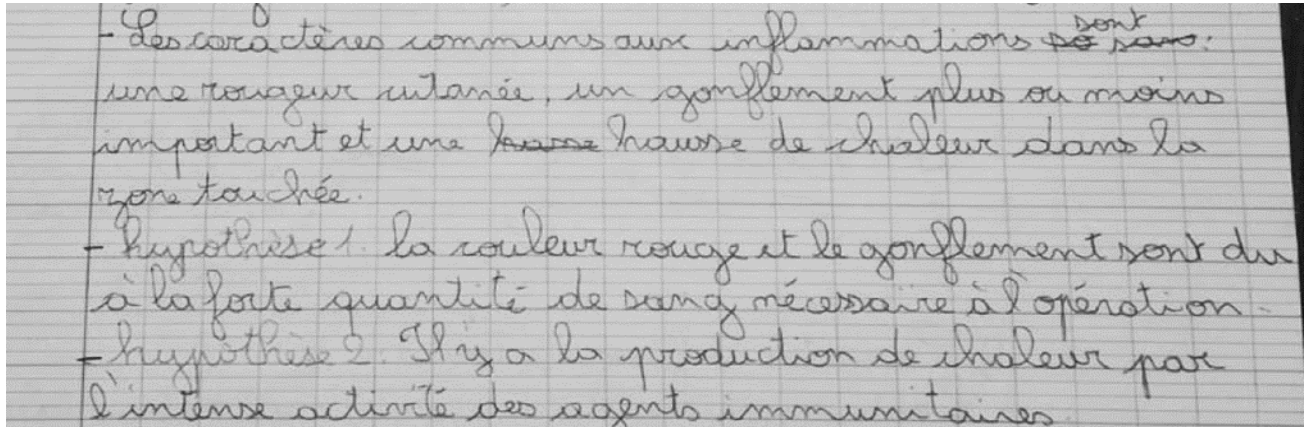 - Les caractères communs aux inflammations sont :
une rougeur cutanée, un gonflement plus ou moins
important et une hausse de chaleur dans la
zone touchée.
- hypothèse 1. la couleur rouge et le gonflement sont du
à la forte quantité de sang nécessaire à l'opération.
- hypothèse 2. Il y a la production de chaleur par
l'intense activité des agents immunitaires.